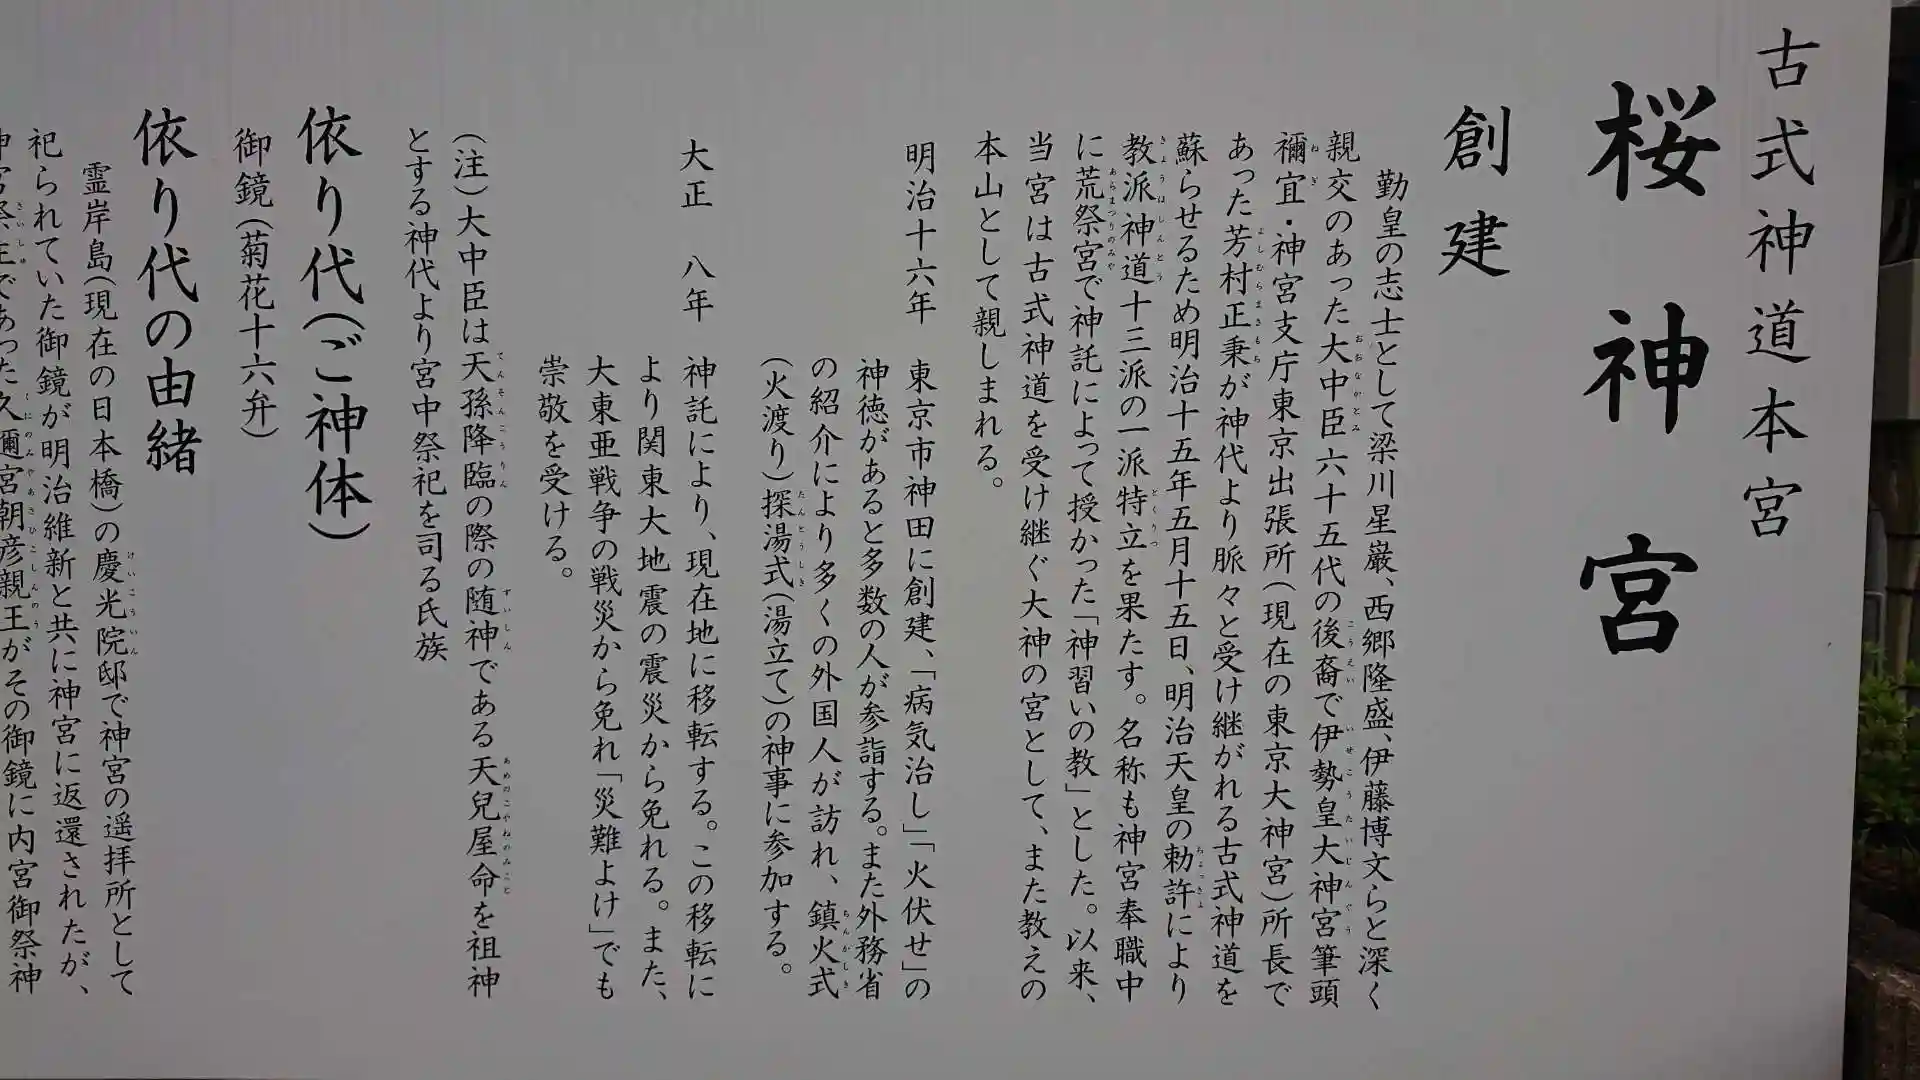 古式神道本宮
桜神宮
創建
勤皇の志士として梁川星巌、西郷隆盛、伊藤博文らと深く
親交のあった大中臣六十五代の後裔で伊勢皇大神宮筆頭
禰宜・神宮支庁東京出張所（現在の東京大神宮）所長で
あった芳村正秉が神代より脈々と受け継がれる古式神道を
蘇らせるため明治十五年五月十五日、明治天皇の勅許により
教派神道十三派の一派特立を果たす。名称も神宮奉職中
に荒祭宮で神託によって授かった「神習いの教」とした。以来、
当宮は古式神道を受け継ぐ大神の宮として、また教えの
本山として親しまれる。
明治十六年　東京市神田に創建、「病気治し」「火伏せ」の
神徳があると多数の人が参詣する。また外務省
の紹介により多くの外国人が訪れ、鎮火式
（火渡り）探湯式（湯立て）の神事に参加する。
大正　八年　神託により、現在地に移転する。この移転に
より関東大地震の震災から免れる。また、
大東亜戦争の戦災から免れ「災難よけ」でも
崇敬を受ける。
（注）大中臣は天孫降臨の際の随神である天兒屋命を祖神
とする神代より宮中祭祀を司る氏族
依り代（ご神体）
御鏡（菊花十六弁）
依り代の由緒
霊岸島（現在の日本橋）の慶光院邸で神宮の遥拝所として
祀られていた御鏡が明治維新と共に神宮に返還されたが、
神宮祭主であった久邇宮朝彦親王がその御鏡に内宮御祭神